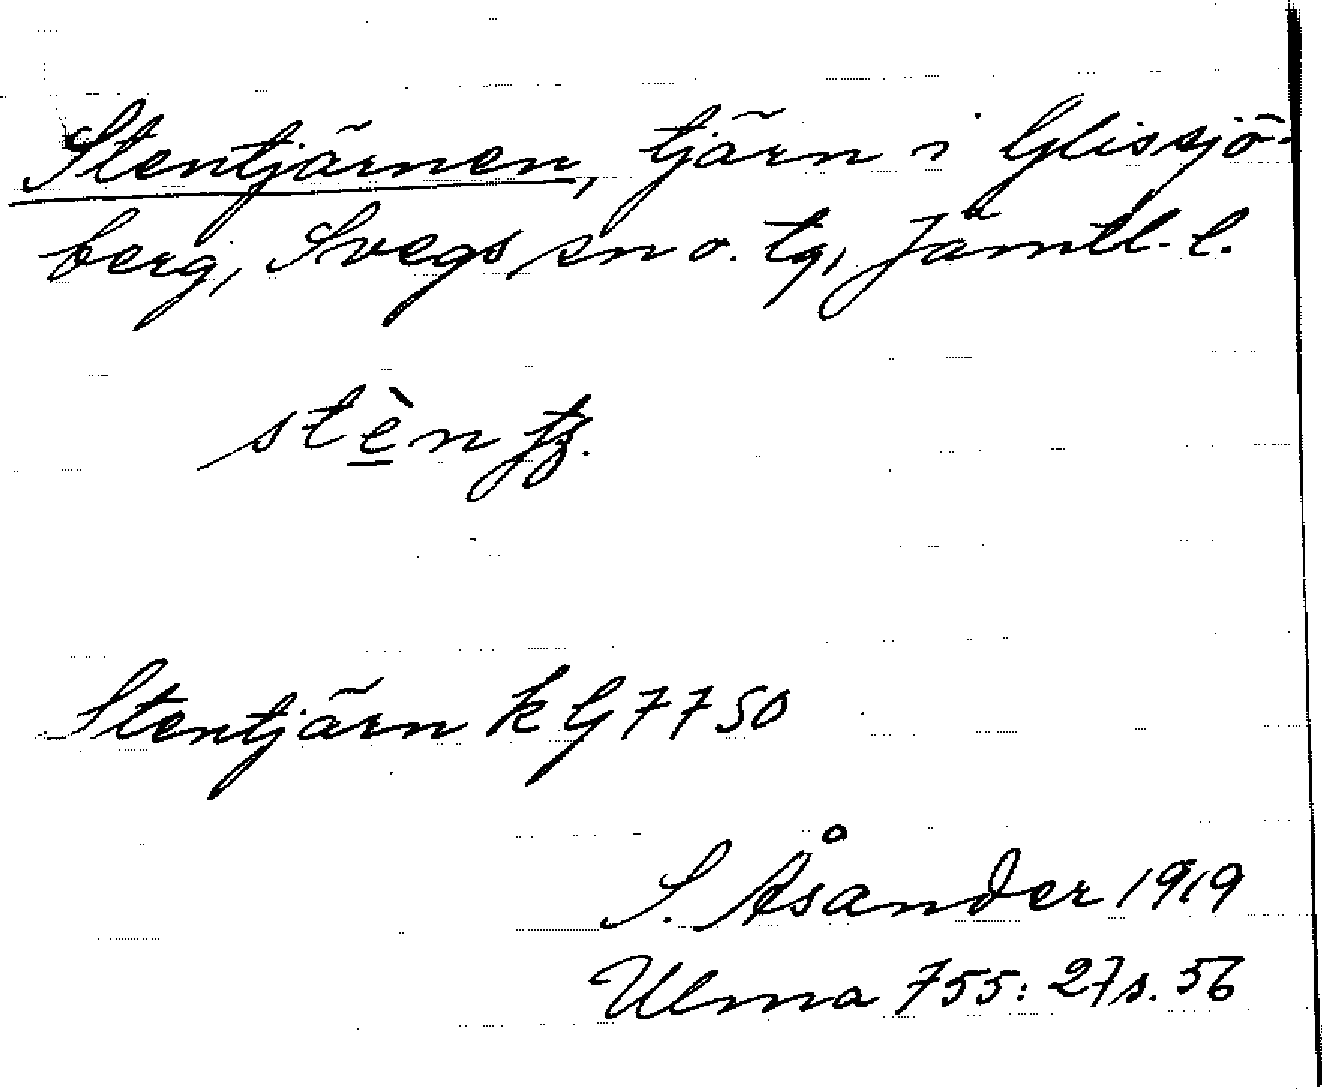 Stentjärnen, tjärn i Glissjö-
berg, Svegs sn o. tg, Jämtl. l.
stèn
Stentjärn k G 7750
S. Åsander 1919
Ulma 755: 27 s. 56